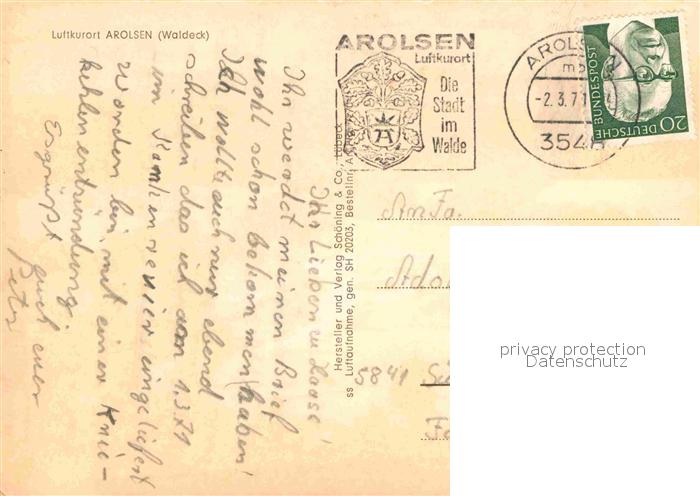 Luftkurort AROLSEN (Waldeck)
AROLSEN
Luftkurort
Die
Stadt
im
Walde
A
AROLSEN
-2.3.71
3548
DEUTSCHE BUNDESPOST
20
Ihr Lieben zu Hause,
Ihr werdet meinen Brief
wohl schon bekommen haben!
Ich wollte auch nur ebend
schreiben das ich am 1.3.71
im Revier eingeliefert
worden bin, mit einer Knie-
kehlenentzündung.
Es grüßt
euch euer
Hersteller und Verlag Schöning & Co., Lübeck
ss Luftaufnahme, gen. SH 20203, Bestellnr. A
An Fa.
Ado
5841
privacy protection
Datenschutz